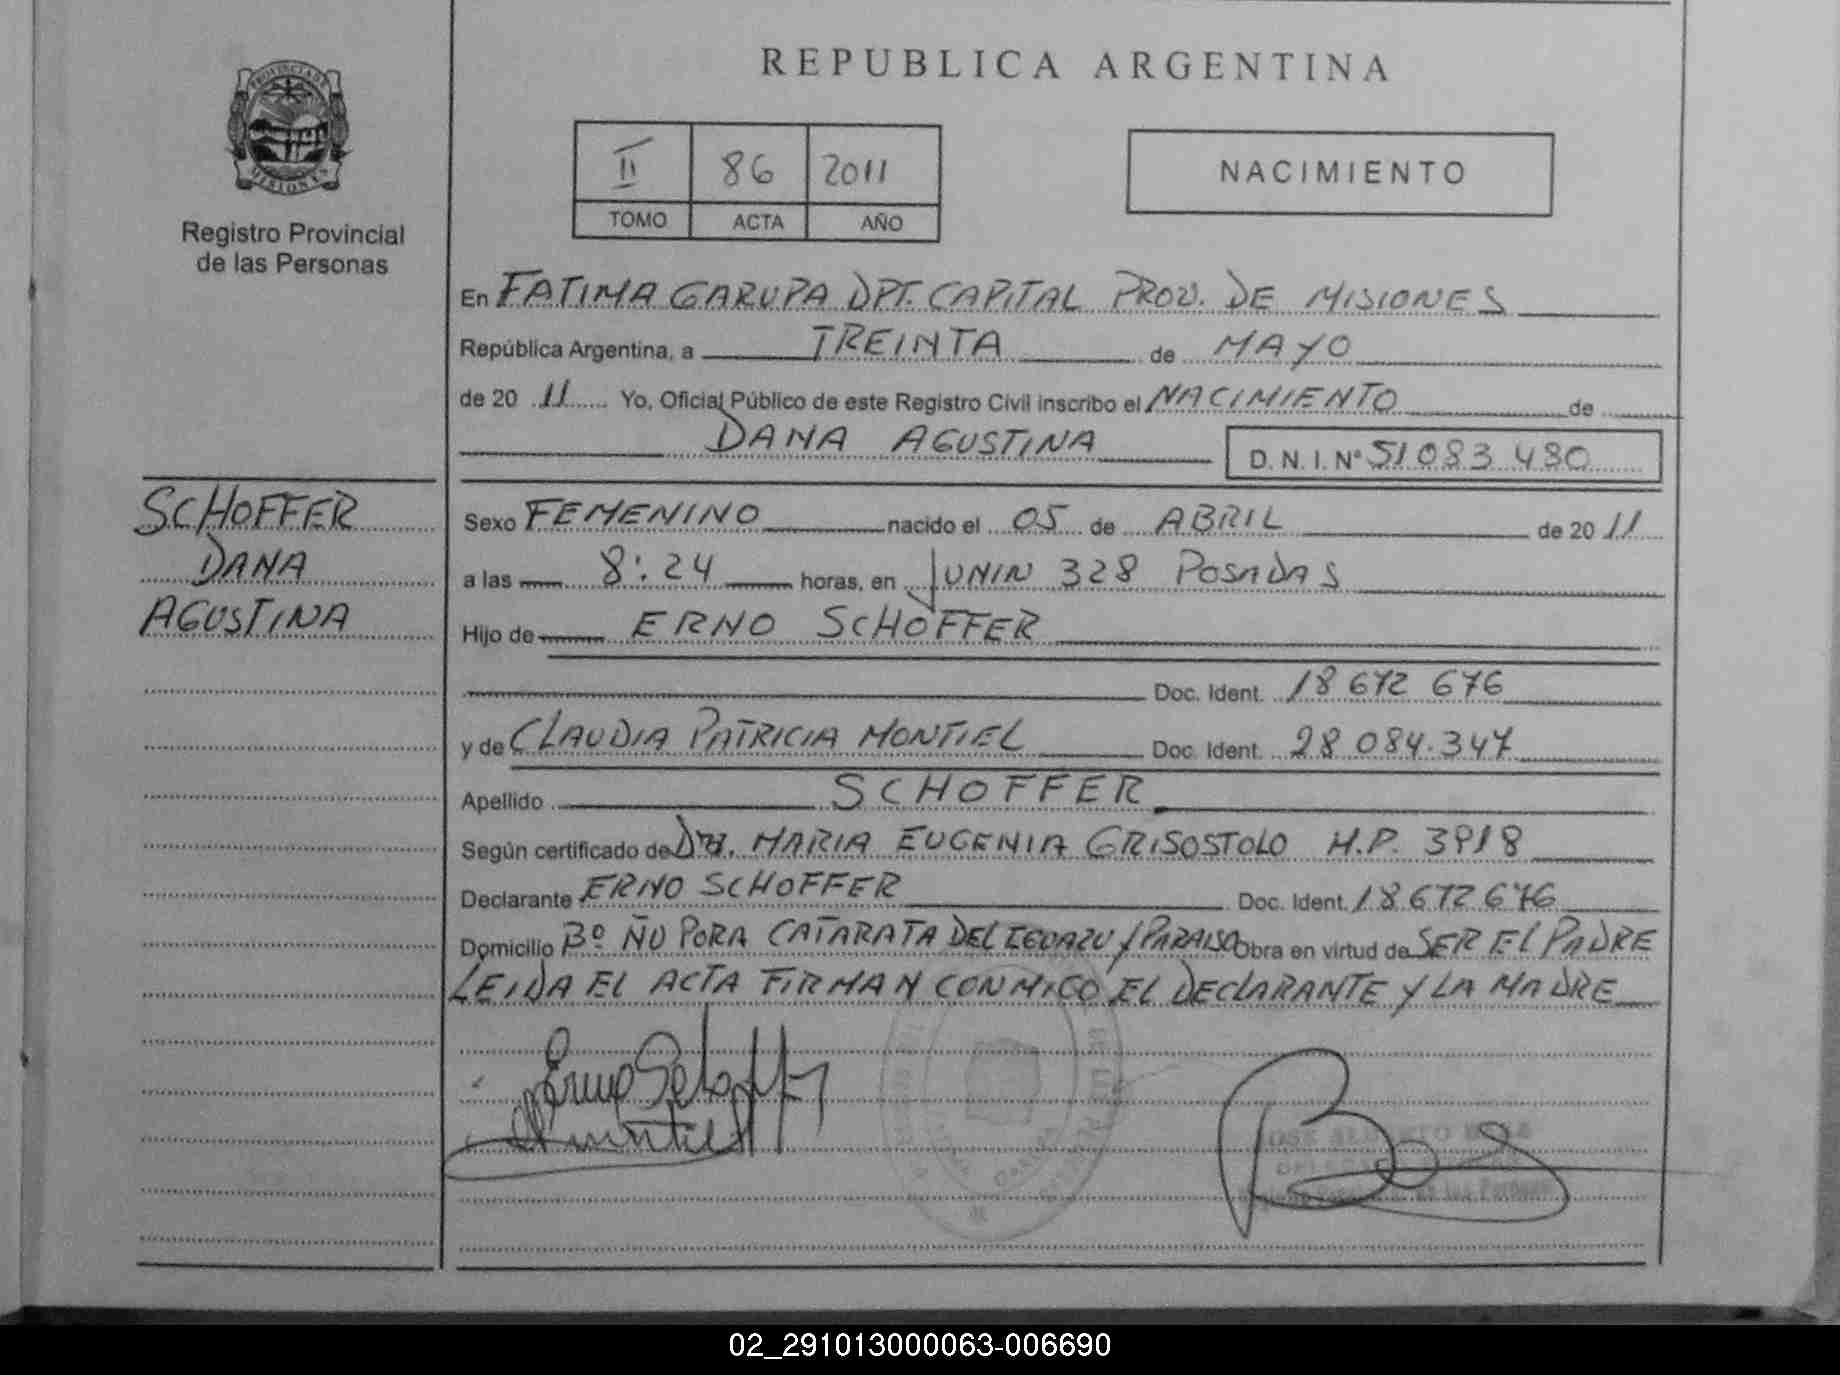 PROVINCIA DE
MISIONES
Registro Provincial
de las Personas
REPUBLICA ARGENTINA
II 86 2011
TOMO ACTA AÑO
NACIMIENTO
En FATIMA GARUPA DPT. CAPITAL PROV. DE MISIONES
República Argentina, a TREINTA de MAYO
de 20 11 Yo, Oficial Público de este Registro Civil inscribo el NACIMIENTO de
DANA AGUSTINA D. N. I. Nº 51 083 480
SCHOFFER
DANA
AGUSTINA
Sexo FEMENINO nacido el 05 de ABRIL de 20 11
a las 8:24 horas, en JUNIN 328 POSADAS
Hijo de ERNO SCHOFFER
Doc. Ident. 18 672 676
y de CLAUDIA PATRICIA MONTIEL Doc. Ident. 28 084.347
Apellido SCHOFFER
Según certificado de DRA. MARIA EUGENIA GRISOSTOLO M.P. 3918
Declarante ERNO SCHOFFER Doc. Ident. 18 672 676
Domicilio Bº ÑU PORA CATARATA DEL IGUAZU y PARAISO Obra en virtud de SER EL PADRE
LEIDA EL ACTA FIRMAN CONMIGO EL DECLARANTE Y LA MADRE
Erno Schoffer
Montiel
JOSE ALBERTO
de las Personas
02_291013000063-006690